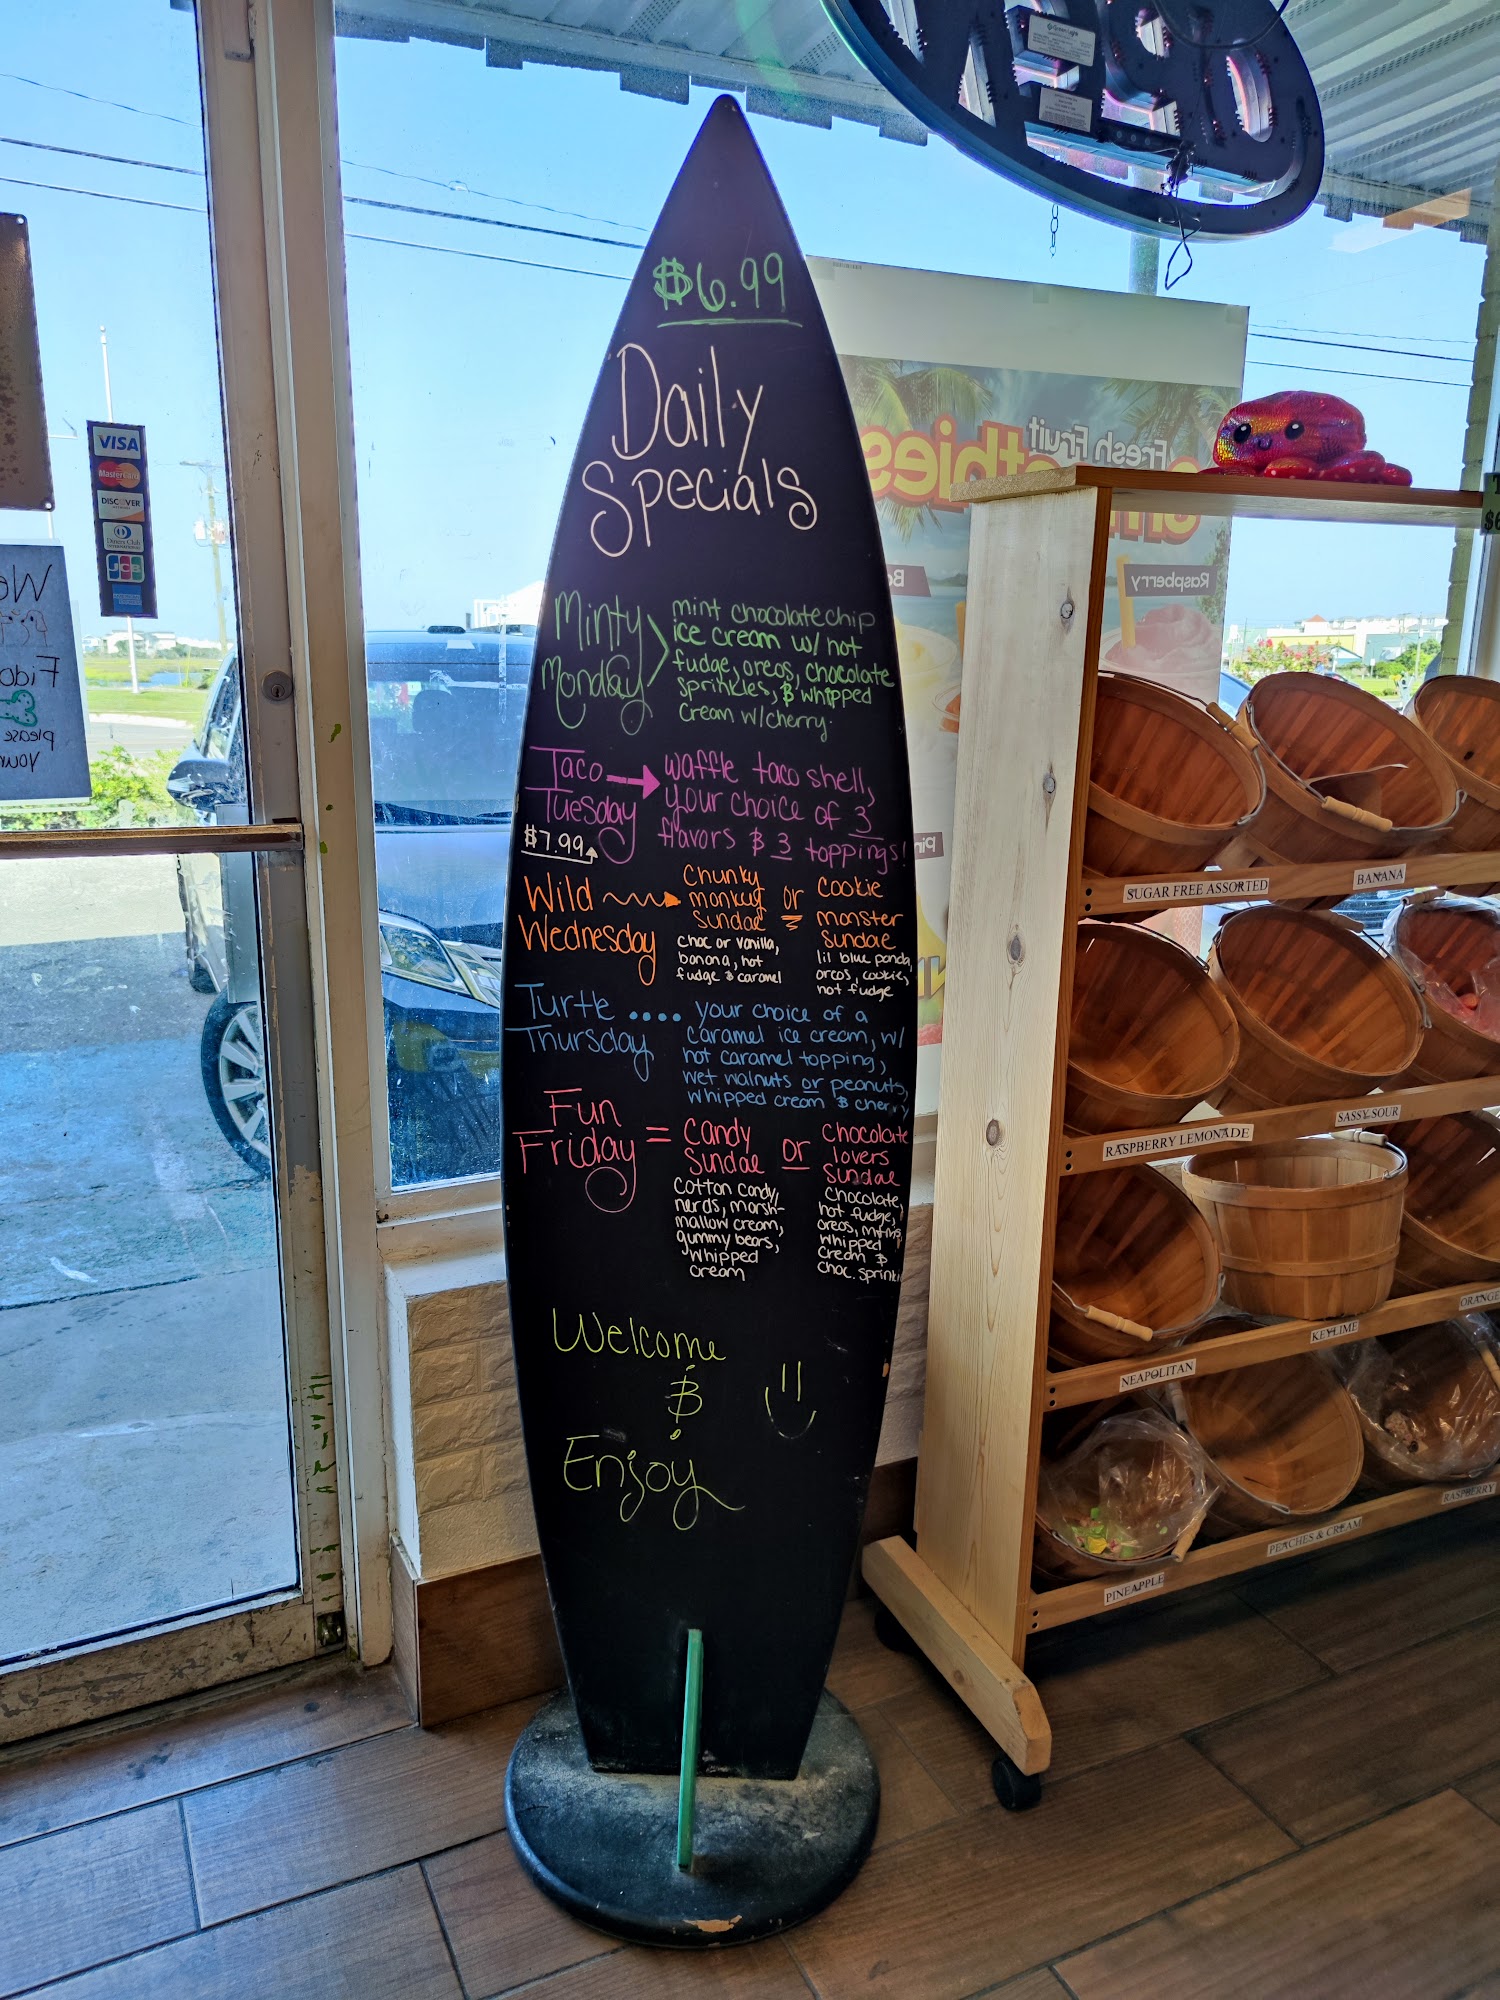 $6.99
Daily
Specials
Minty
Monday
mint chocolate chip
ice cream w/ hot
fudge, oreos, chocolate
sprinkles, & whipped
cream w/cherry.
Taco
Tuesday
$7.99
waffle taco shell,
your choice of 3
flavors & 3 toppings!
Wild
Wednesday
Chunky
monkey
Sundae
choc or vanilla,
banana, hot
fudge & caramel
or
cookie
monster
sundae
lil blue panda,
oreos, cookie,
hot fudge
Turtle ....
Thursday
your choice of a
caramel ice cream, w/
hot caramel topping,
wet walnuts or peanuts,
whipped cream & cherry
Fun
Friday =
Candy
Sundae
Cotton candy,
nerds, marsh-
mallow cream,
gummy bears,
whipped
cream
or
chocolate
lovers
sundae
Chocolate,
hot fudge,
oreos, m+ms,
whipped
cream &
choc. sprinkl
Welcome
&
Enjoy
VISA
MasterCard
DISCOVER
Diners Club
JCB
We
Fido
please
your
Fresh Fruit
Smoothies
Raspberry
SUGAR FREE ASSORTED
BANANA
RASPBERRY LEMONADE
SASSY SOUR
NEAPOLITAN
KEYLIME
ORANGE
PINEAPPLE
PEACHES & CREAM
RASPBERRY